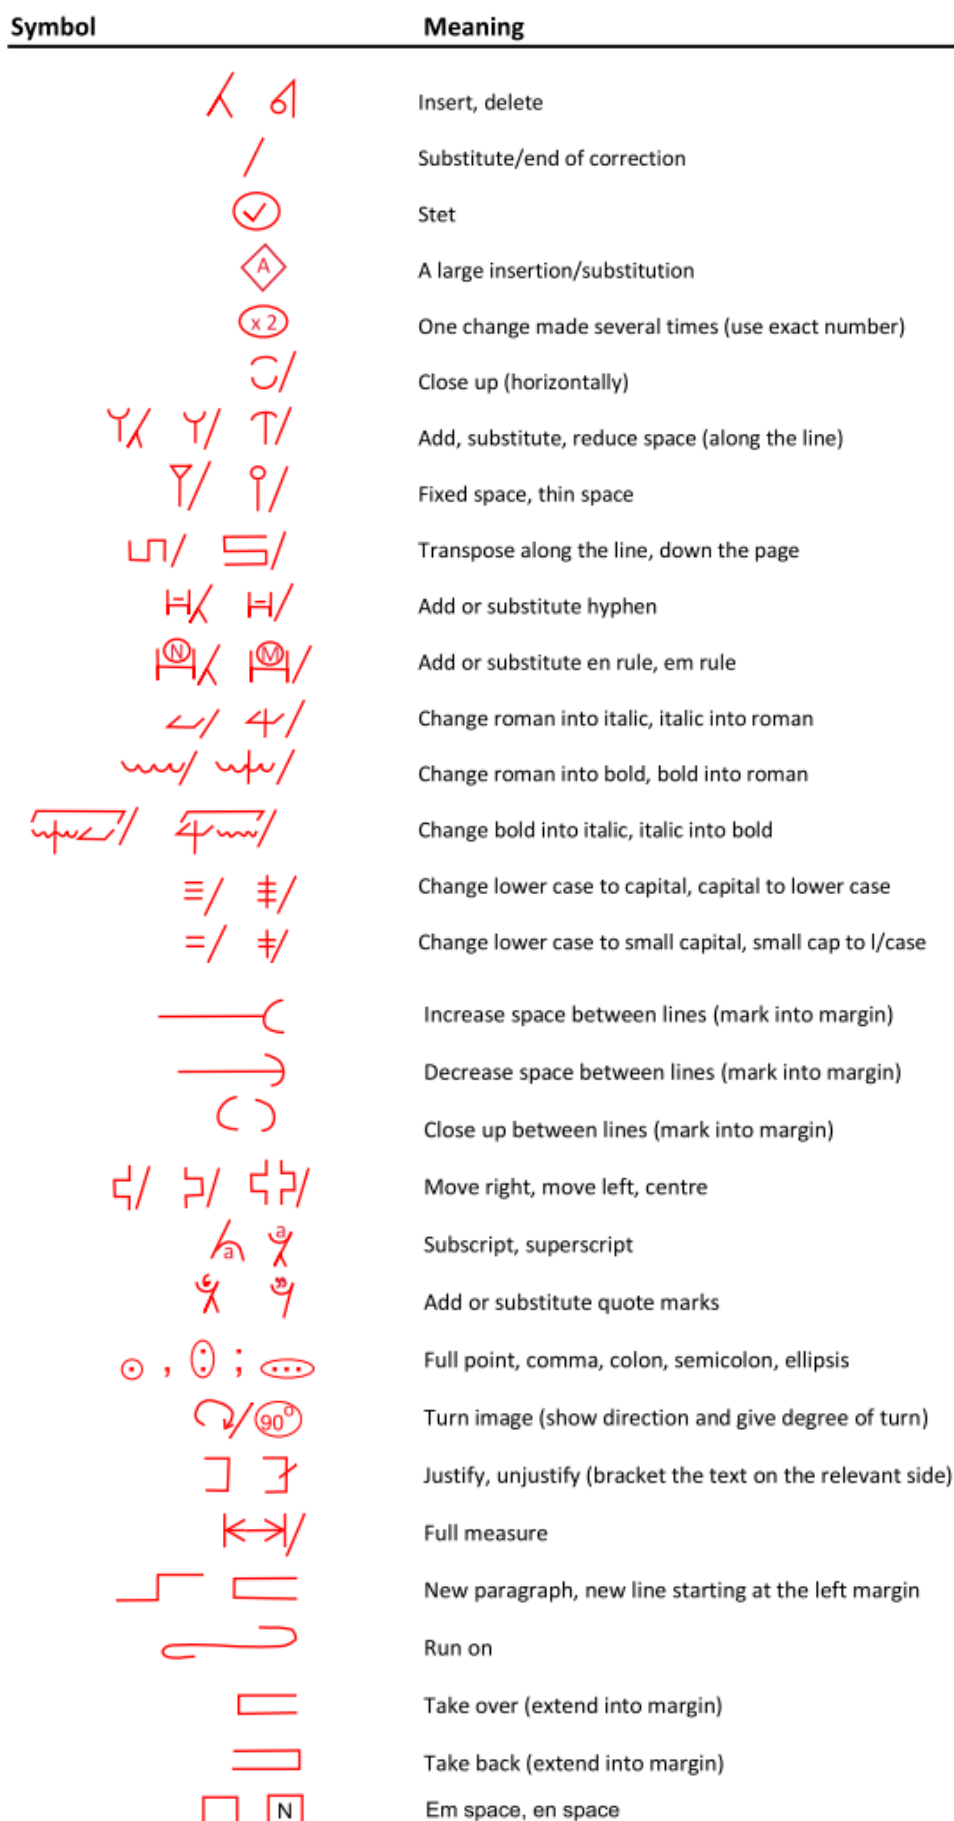 Symbol Meaning
Insert, delete
/ Substitute/end of correction
Stet
A A large insertion/substitution
x 2 One change made several times (use exact number)
Close up (horizontally)
Add, substitute, reduce space (along the line)
Fixed space, thin space
Transpose along the line, down the page
Add or substitute hyphen
N M Add or substitute en rule, em rule
Change roman into italic, italic into roman
Change roman into bold, bold into roman
Change bold into italic, italic into bold
Change lower case to capital, capital to lower case
Change lower case to small capital, small cap to l/case
Increase space between lines (mark into margin)
Decrease space between lines (mark into margin)
Close up between lines (mark into margin)
Move right, move left, centre
a a Subscript, superscript
Add or substitute quote marks
. , : ; ... Full point, comma, colon, semicolon, ellipsis
90° Turn image (show direction and give degree of turn)
Justify, unjustify (bracket the text on the relevant side)
Full measure
New paragraph, new line starting at the left margin
Run on
Take over (extend into margin)
Take back (extend into margin)
N Em space, en space